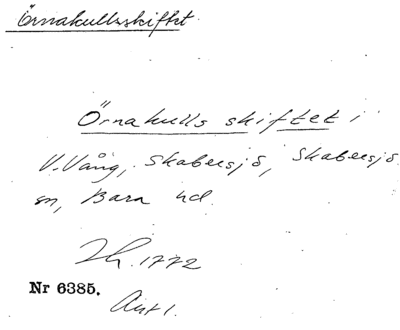 Örnakullsskiftet.
Örnakulls skiftet i
V.Vång, Skabersjö, Skabersjö
sn, Bara hd.
Lh. 1772
Nr 6385.
Avt 1.